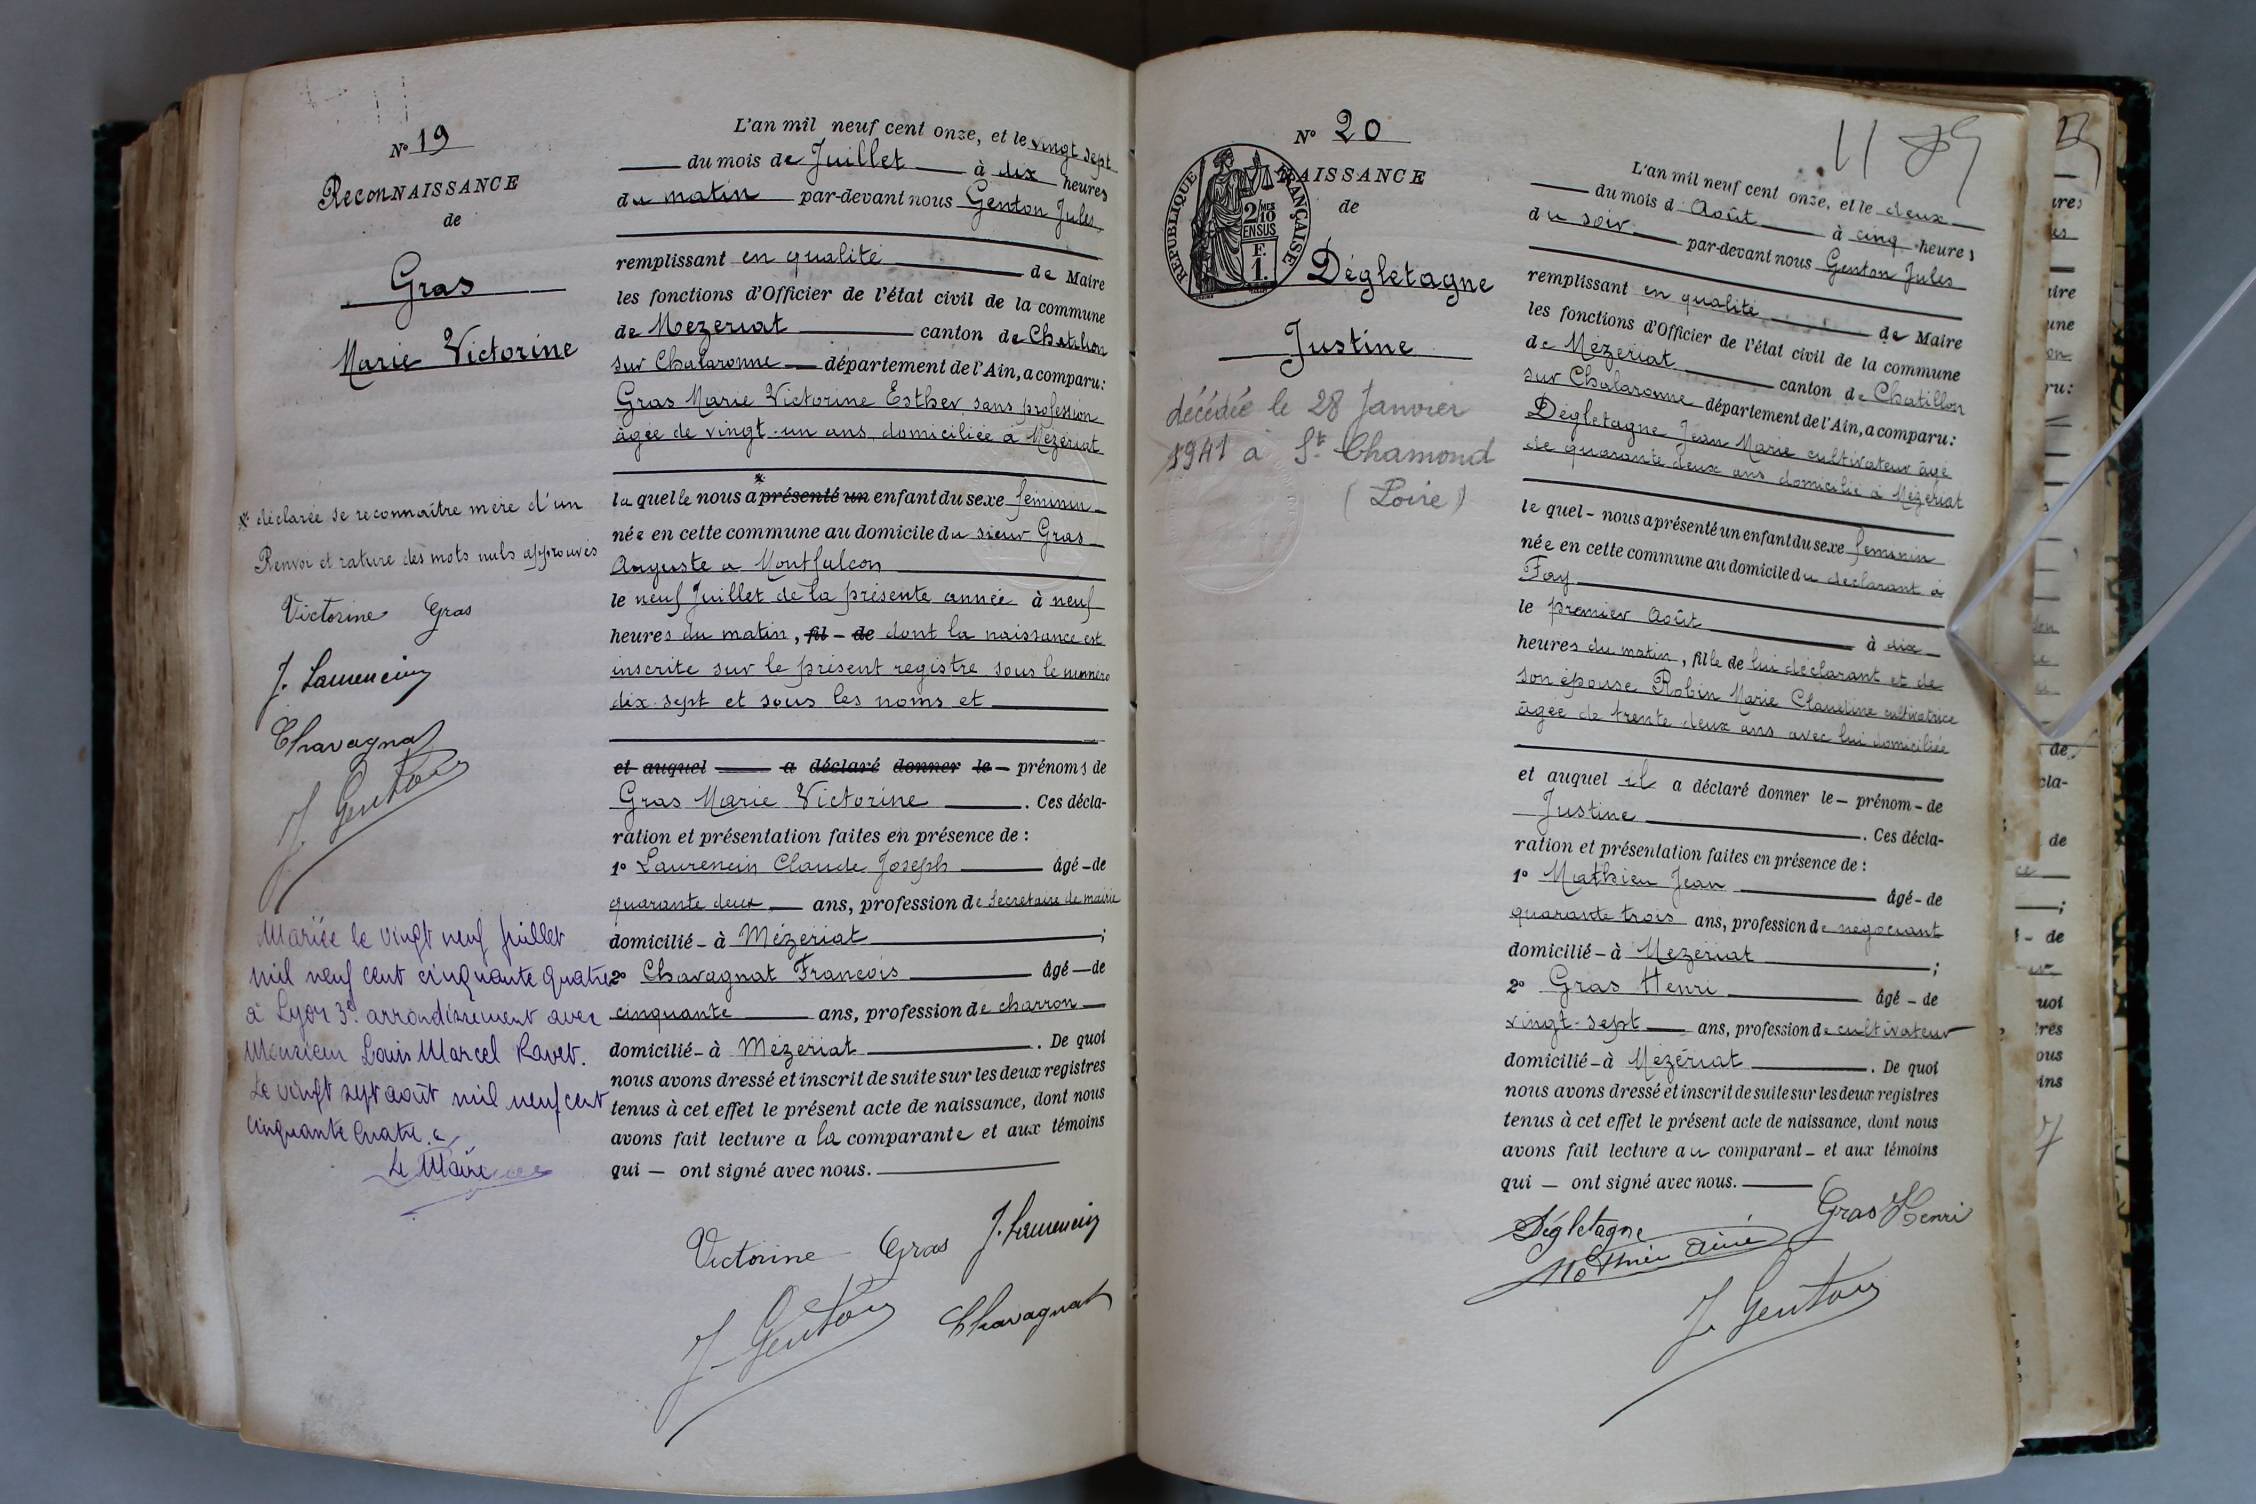 N° 19
ReconNAISSANCE
de
Gras
Marie Victorine
* déclarée se reconnaître mère d'un
Renvoi et rature des mots nuls approuvés
Victorine Gras
J. Laurencin
Chavagnat
J. Genton
Mariée le vingt neuf juillet
mil neuf cent cinquante quatre
à Lyon 3e arrondissement avec
Monsieur Louis Marcel Ravet.
Le vingt sept août mil neuf cent
cinquante quatre.
Le Maire
L'an mil neuf cent onze, et le vingt sept
du mois de Juillet à dix heures
du matin par-devant nous Genton Jules
remplissant en qualité de Maire
les fonctions d'Officier de l'état civil de la commune
de Mezeriat canton de Chatillon
sur Chalaronne département de l'Ain, a comparu:
Gras Marie Victorine Esther sans profession
âgée de vingt-un ans, domiciliée à Mézériat
la quelle nous a * présenté un enfant du sexe féminin
née en cette commune au domicile du sieur Gras
Auguste a Montfalcon
le neuf Juillet de la présente année à neuf
heures du matin, fil - de dont la naissance est
inscrite sur le présent registre sous le numéro
dix-sept et sous les noms et
et auquel a déclaré donner le - prénoms de
Gras Marie Victorine . Ces décla-
ration et présentation faites en présence de :
1° Laurencin Claude Joseph âgé - de
quarante deux ans, profession de secrétaire de mairie
domicilié - à Mézériat ;
2° Chavagnat Francois âgé - de
cinquante ans, profession de charron
domicilié - à Mézériat . De quoi
nous avons dressé et inscrit de suite sur les deux registres
tenus à cet effet le présent acte de naissance, dont nous
avons fait lecture a la comparante et aux témoins
qui - ont signé avec nous.
Victorine Gras J. Laurencin
J. Genton Chavagnat
N° 20
NAISSANCE
de
RÉPUBLIQUE FRANÇAISE
2/10 MES
EN SUS
F.
1.
Dégletagne
Justine
décédée le 28 Janvier
1941 à St Chamond
(Loire)
L'an mil neuf cent onze, et le deux
du mois d'Août à cinq heures
du soir par-devant nous Genton Jules
remplissant en qualité de Maire
les fonctions d'Officier de l'état civil de la commune
de Mézériat canton de Chatillon
sur Chalaronne département de l'Ain, a comparu:
Dégletagne Jean Marie cultivateur âgé
de quarante deux ans domicilié à Mézériat
le quel - nous a présenté un enfant du sexe féminin
née en cette commune au domicile du déclarant à
Fay
le premier Août à dix
heures du matin, fille de lui déclarant et de
son épouse Robin Marie Claudine cultivatrice
âgée de trente deux ans avec lui domiciliée
et auquel il a déclaré donner le - prénom - de
Justine . Ces décla-
ration et présentation faites en présence de :
1° Mathieu Jean âgé - de
quarante trois ans, profession de négociant
domicilié - à Mezeriat ;
2° Gras Henri âgé - de
vingt-sept ans, profession de cultivateur
domicilié - à Mézériat . De quoi
nous avons dressé et inscrit de suite sur les deux registres
tenus à cet effet le présent acte de naissance, dont nous
avons fait lecture au comparant - et aux témoins
qui - ont signé avec nous.
Dégletagne Gras Henri
J. Genton